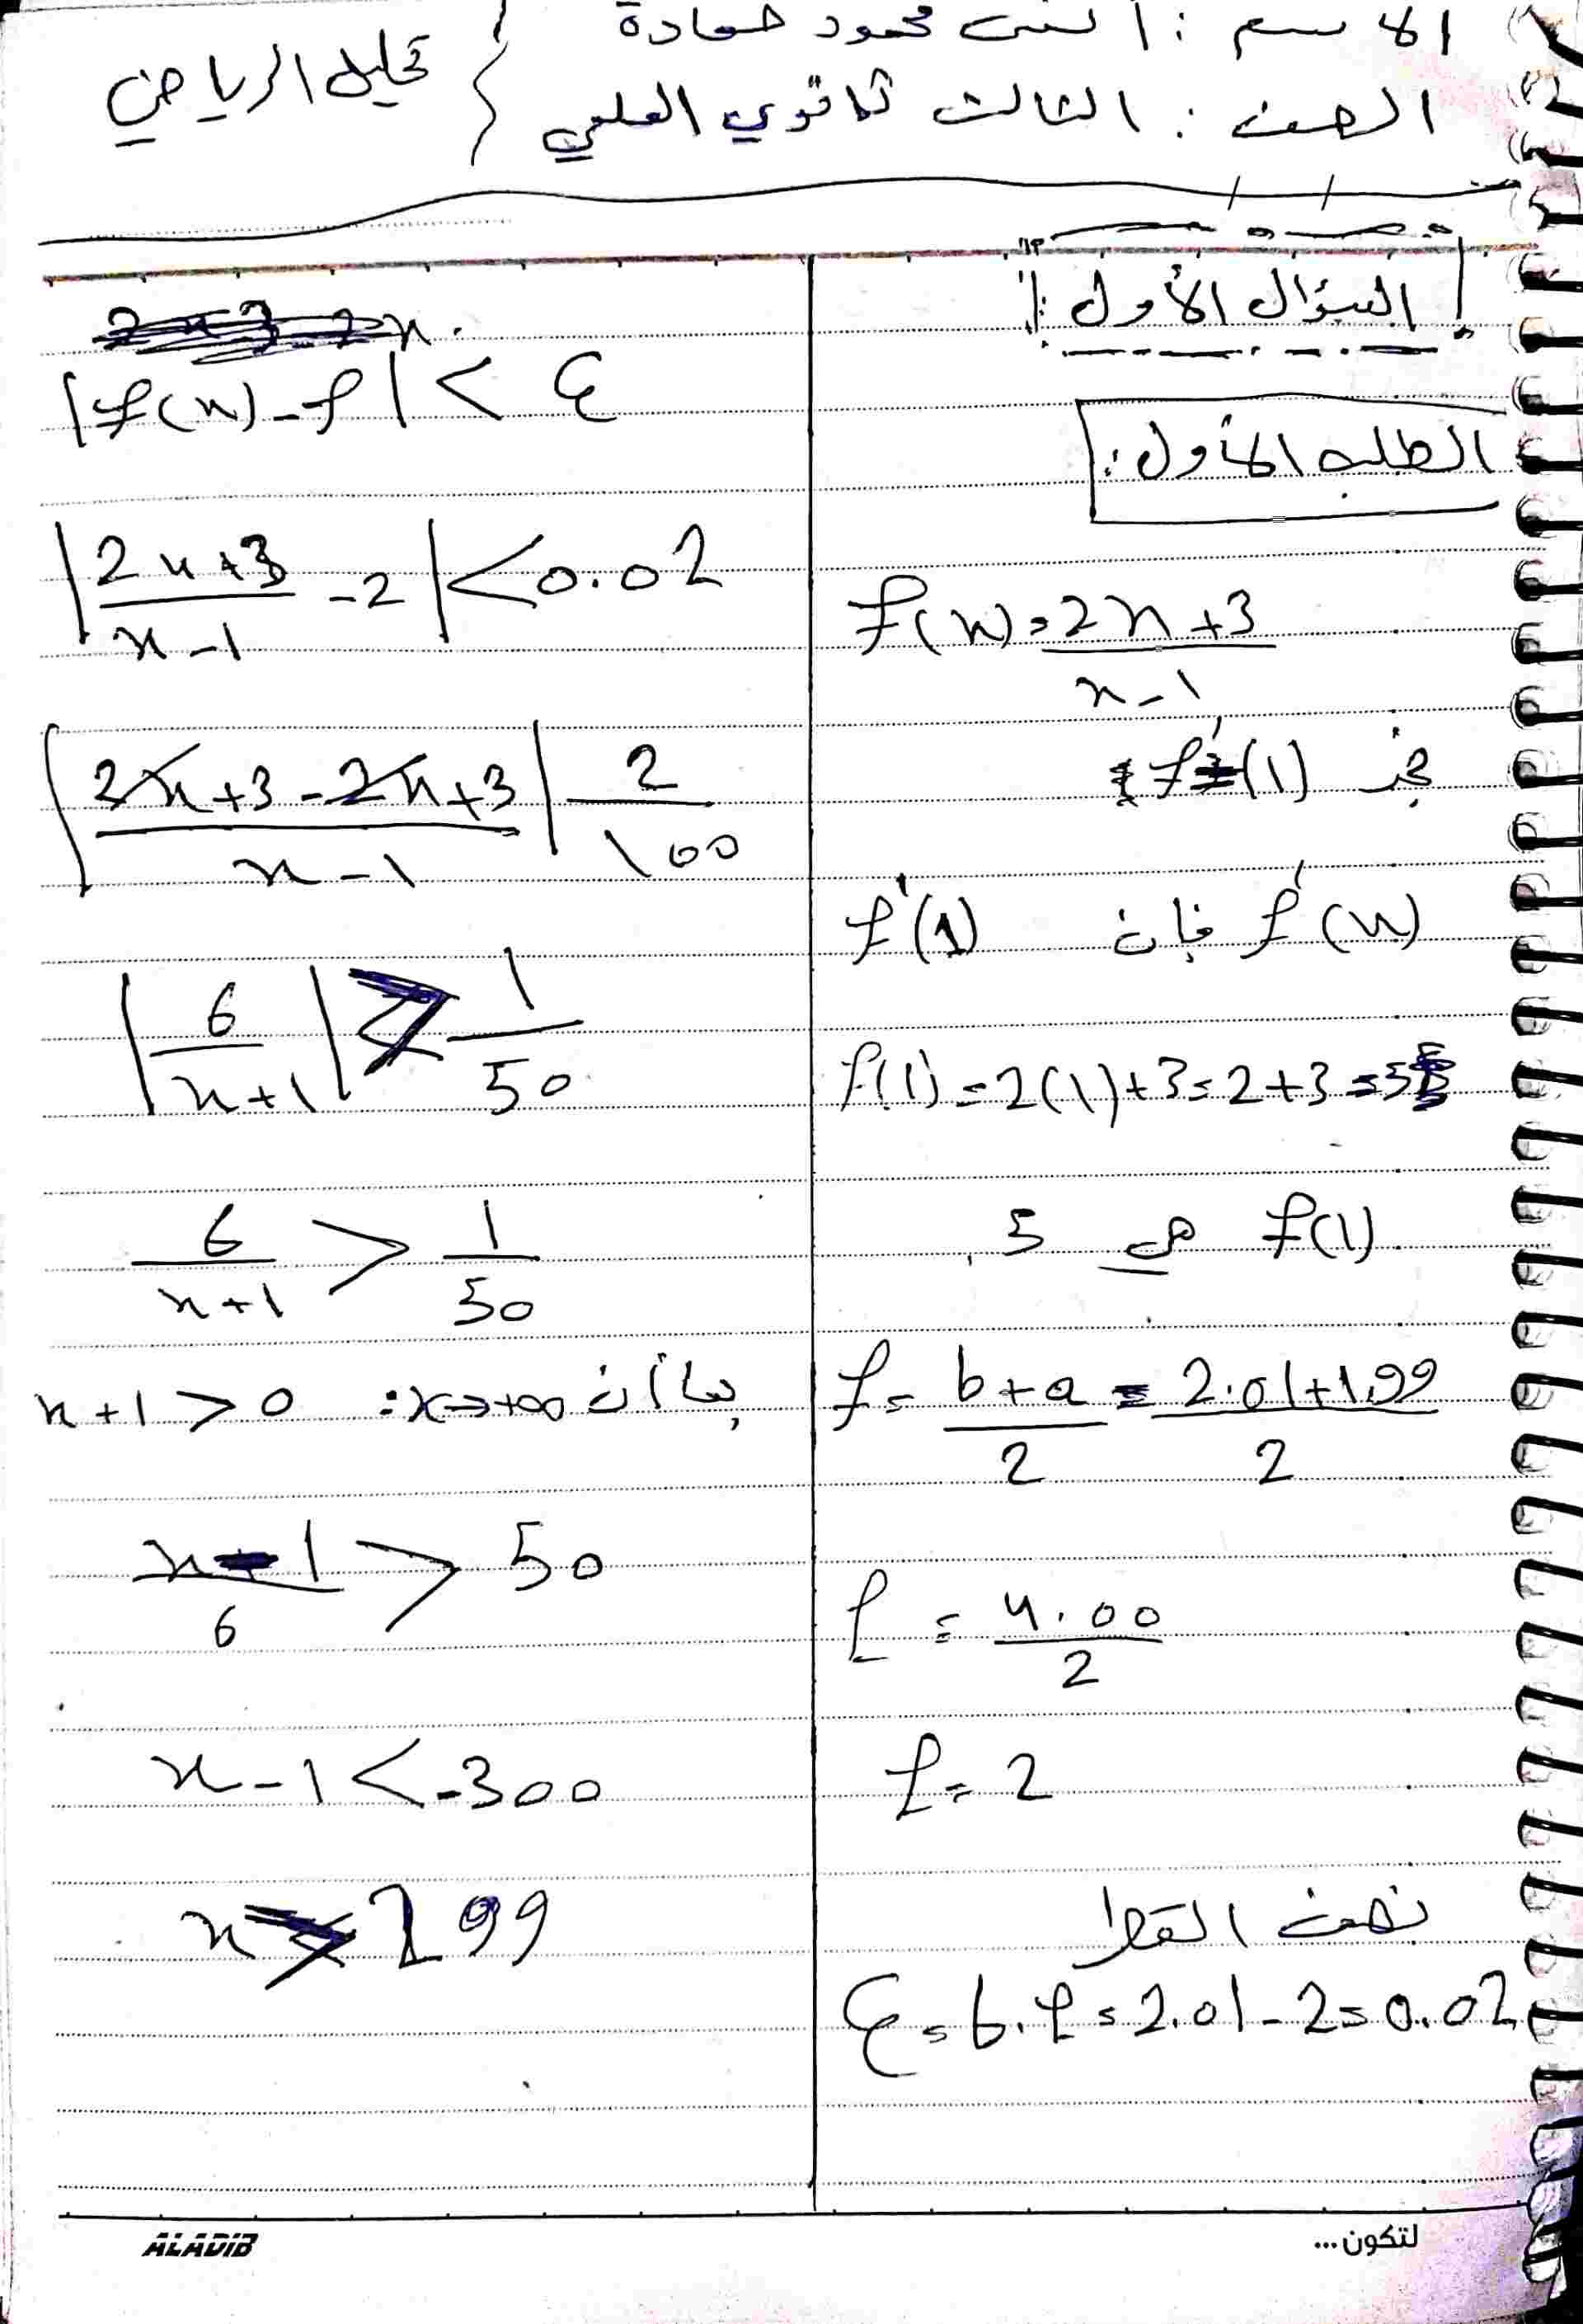 الاسم : أنس محمود حمادة
الصف : الثالث ثانوي العلمي } تحليل الرياضي
السؤال الأول :
الطلب الأول :
f(x) = 2x+3 / x-1
نجد f'(1)
f'(x) فإن f'(1)
f(1) = 2(1)+3 = 2+3 = 5
f(1) هي 5
ℓ = b+a / 2 = 2.01+1.99 / 2
ℓ = 4.00 / 2
ℓ = 2
نصف القطر
ε = b-ℓ = 2.01-2 = 0.02
|f(x)-ℓ| < ε
|2x+3 / x-1 - 2| < 0.02
|2x+3-2x+3 / x-1| 2 / 100
|6 / x+1| > 1 / 50
6 / x+1 > 1 / 50
بما أن x→+∞ : x+1 > 0
x-1 / 6 > 50
x-1 < -300
x > 299
لتكون...
ALADIB